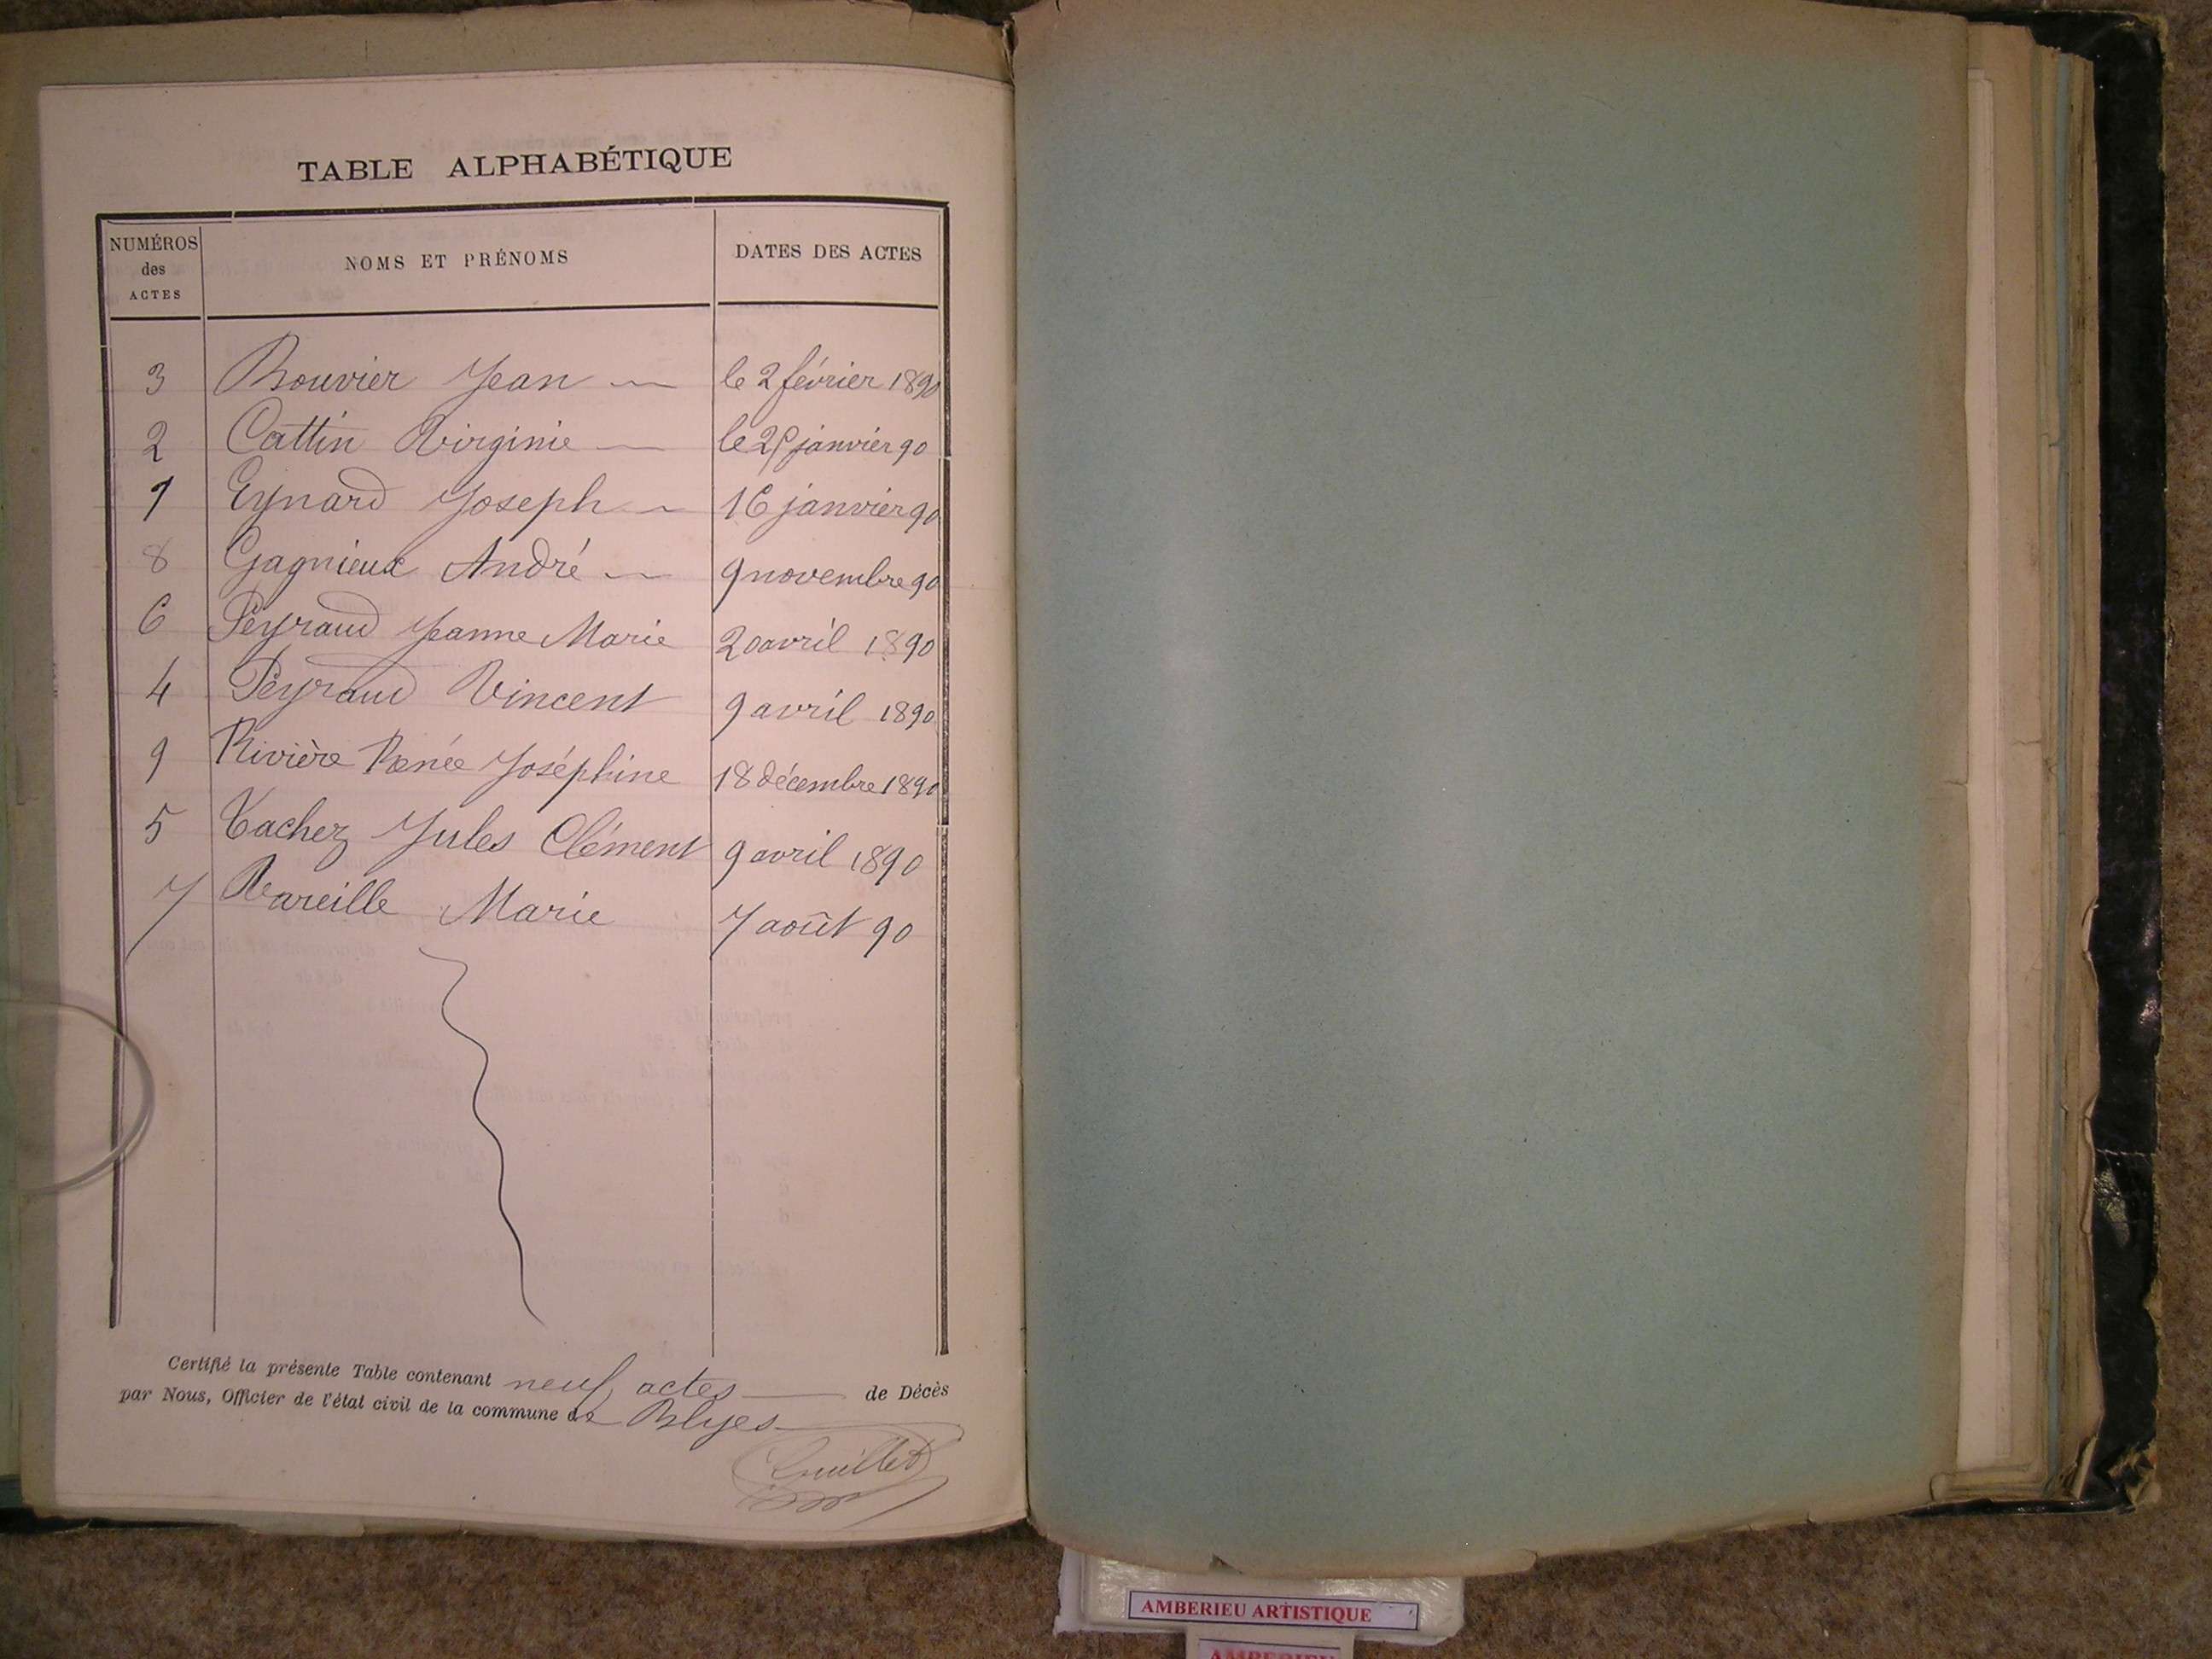 TABLE ALPHABÉTIQUE
NUMÉROS des ACTES NOMS ET PRÉNOMS DATES DES ACTES
3 Bouvier Jean le 2 février 1890
2 Cattin Virginie le janvier 90
1 Eynard Joseph 16 janvier 90
8 Gagnieux André 9 novembre 90
6 Peyraud Jeanne Marie 20 avril 1890
4 Peyraud Vincent 9 avril 1890
9 Rivière Renée Joséphine 18 décembre 1890
5 Vacher Jules Clément 9 avril 1890
7 Vareille Marie 7 août 90
Certifié la présente Table contenant neuf actes de Décès
par Nous, Officier de l'état civil de la commune de Blyes
AMBERIEU ARTISTIQUE
AMBERIEU